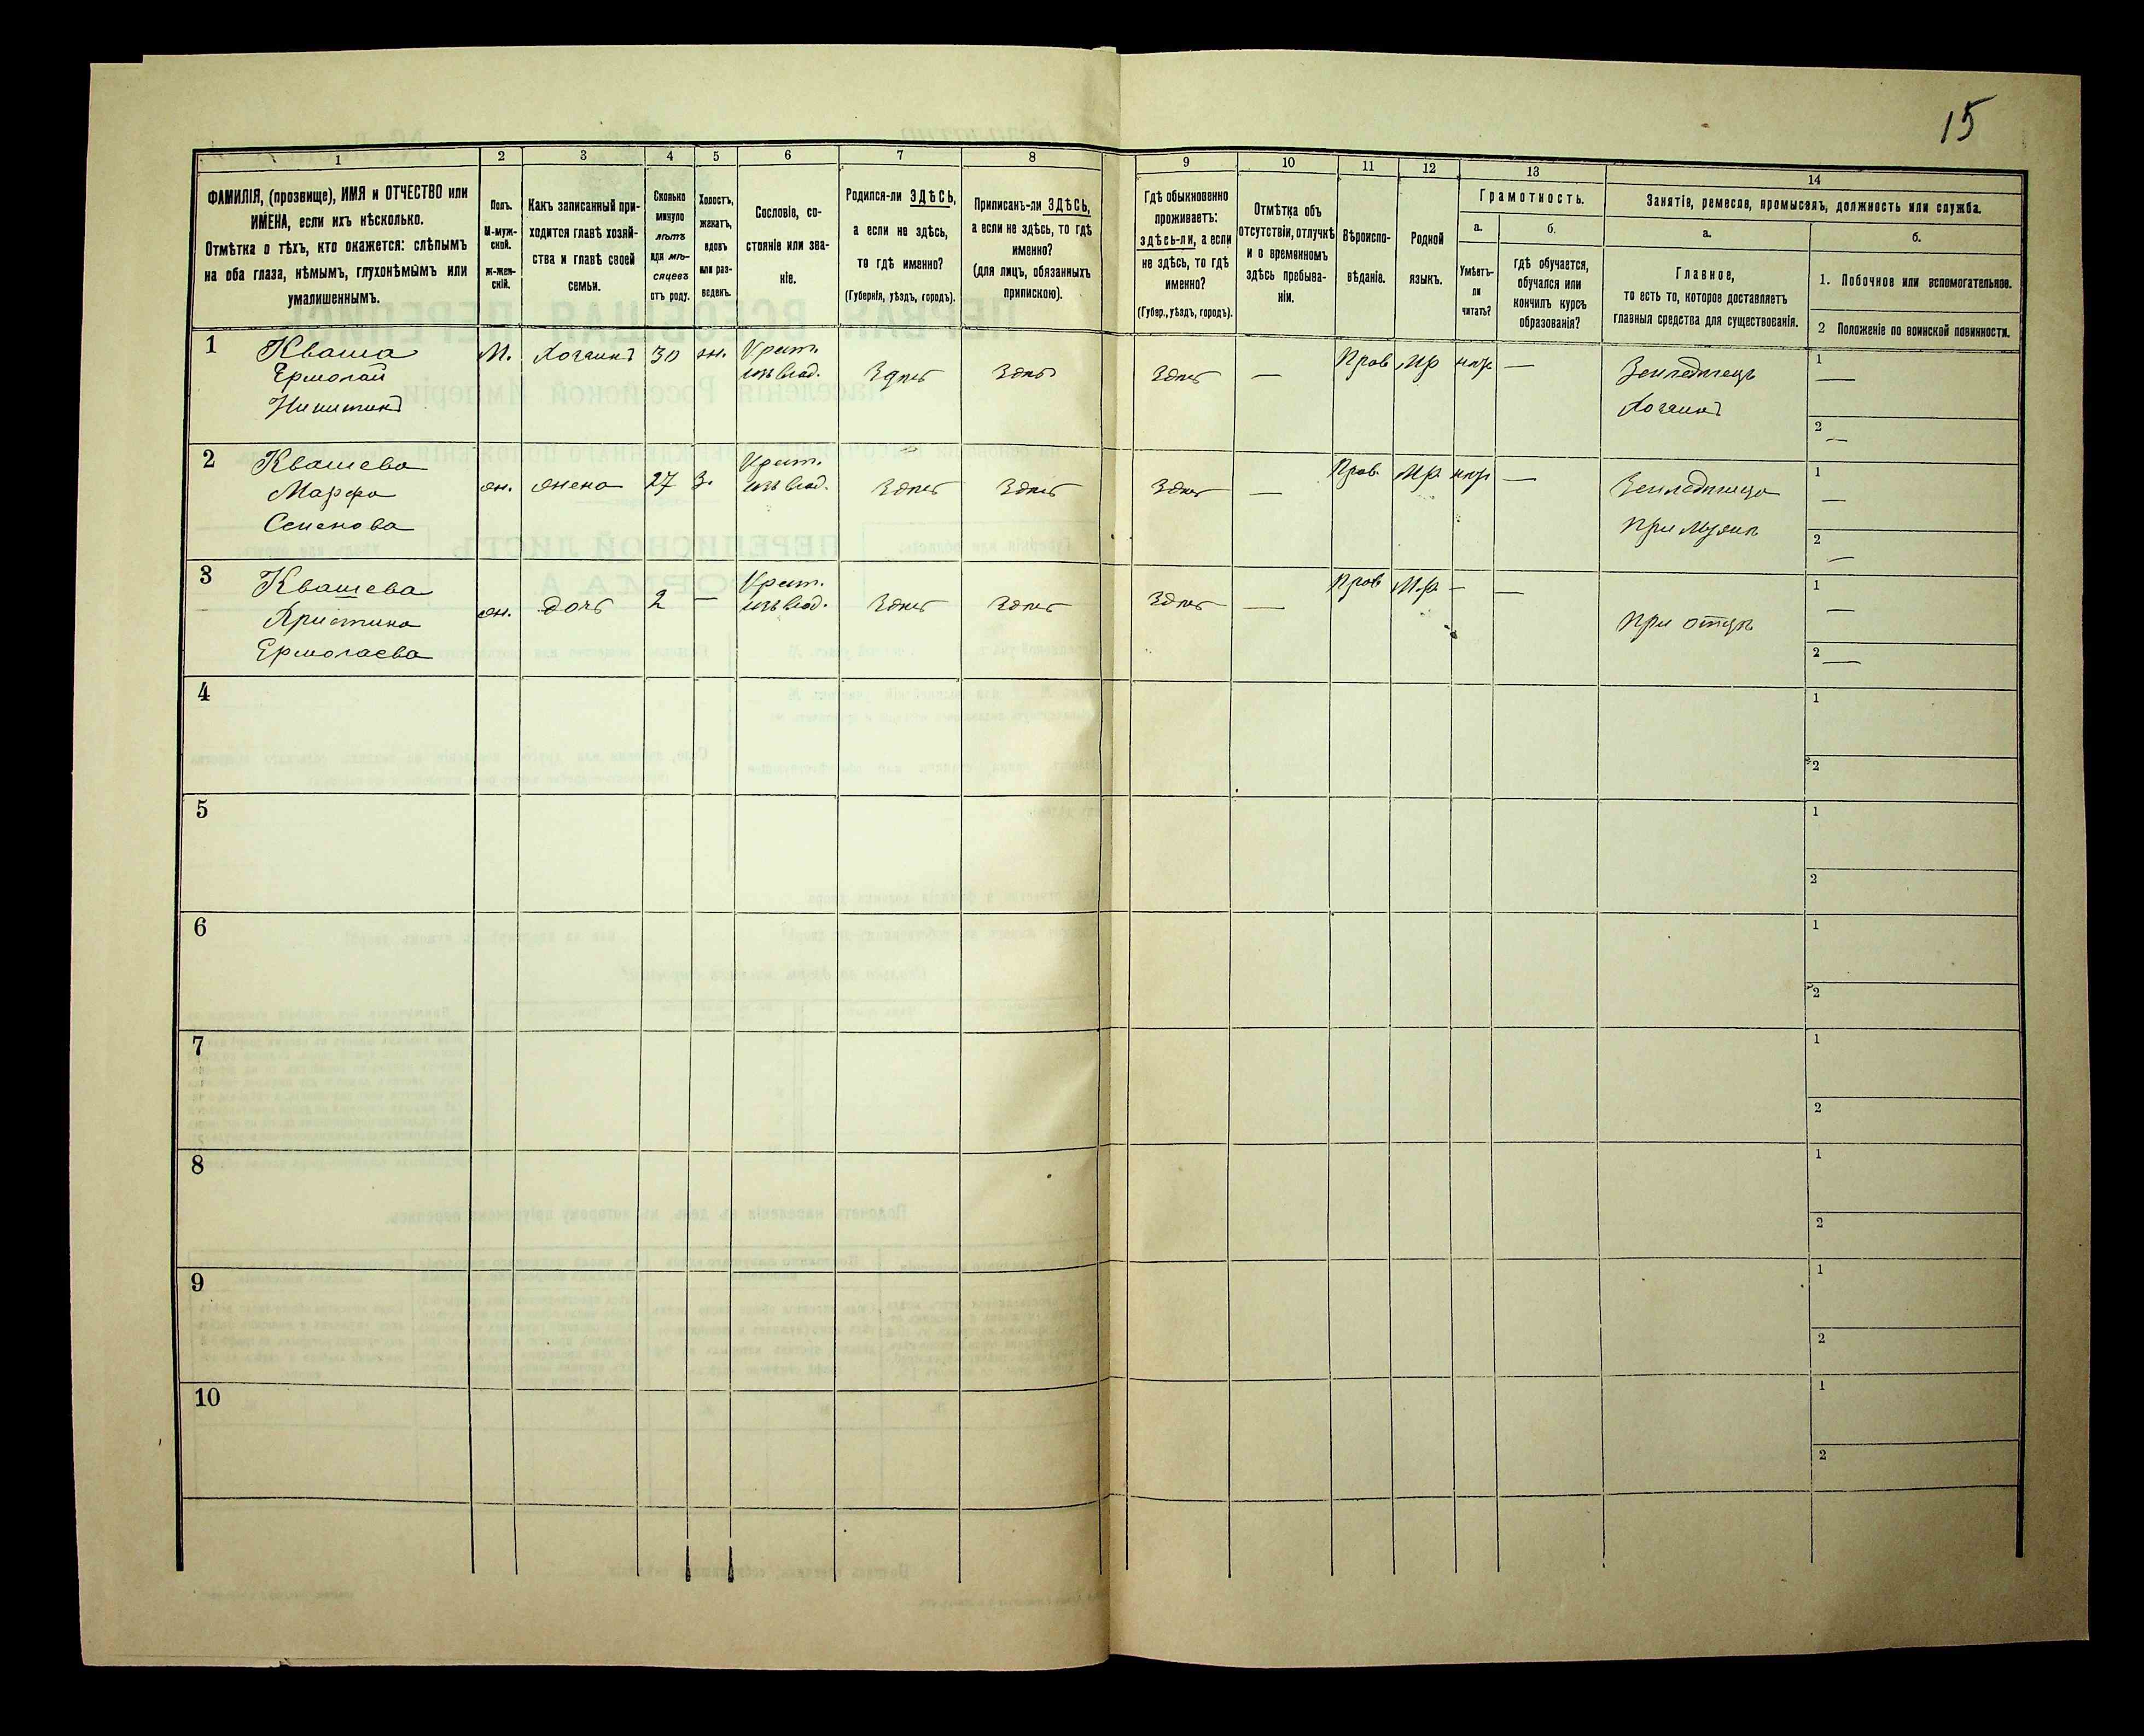 15
1 2 3 4 5 6 7 8 9 10 11 12 13 14
ФАМИЛІЯ, (прозвище), ИМЯ и ОТЧЕСТВО или
ИМЕНА, если ихъ нѣсколько.
Отмѣтка о тѣхъ, кто окажется: слѣпымъ
на оба глаза, нѣмымъ, глухонѣмымъ или
умалишеннымъ.
Полъ.
М-муж-
ской.
ж-жен-
скій.
Какъ записанный при-
ходится главѣ хозяй-
ства и главѣ своей
семьи.
Сколько
минуло
лѣтъ
или мѣ-
сяцевъ
отъ роду.
Холостъ,
женатъ,
вдовъ
или раз-
веденъ.
Сословіе, со-
стояніе или зва-
ніе.
Родился-ли ЗДѢСЬ,
а если не здѣсь,
то гдѣ именно?
(Губернія, уѣздъ, городъ).
Приписанъ-ли ЗДѢСЬ,
а если не здѣсь, то гдѣ
именно?
(для лицъ, обязанныхъ
припискою).
Гдѣ обыкновенно
проживаетъ:
здѣсь-ли, а если
не здѣсь, то гдѣ
именно?
(Губер., уѣздъ, городъ).
Отмѣтка объ
отсутствіи, отлучкѣ
и о временномъ
здѣсь пребыва-
ніи.
Вѣроиспо-
вѣданіе.
Родной
языкъ.
Грамотность.
а.
Умѣетъ-
ли
читать?
б.
гдѣ обучается,
обучался или
кончилъ курсъ
образованія?
Занятіе, ремесло, промыселъ, должность или служба.
а.
Главное,
то есть то, которое доставляетъ
главныя средства для существованія.
б.
1. Побочное или вспомогательное.
2 Положеніе по воинской повинности.
1 Кваша М. Хозяинъ 30 ж. Крест. Прав М.р. нѣтъ — 1
Ермолай изъ влад. Здѣсь Здѣсь Здѣсь — Земледѣлецъ —
Никитинъ Хозяинъ 2 —
2 Квашева ж. жена 27 З. Крест. Прав. М.р. нѣтъ — 1
Марфа изъ влад. Здѣсь Здѣсь Здѣсь — Земледѣлица —
Семенова При мужѣ 2 —
3 Квашева ж. дочь 2 — Крест. Прав М.р. — — 1
Христина изъ влад. Здѣсь Здѣсь Здѣсь — При отцѣ —
Ермолаева 2 —
4 1
2
5 1
2
6 1
2
7 1
2
8 1
2
9 1
2
10 1
2